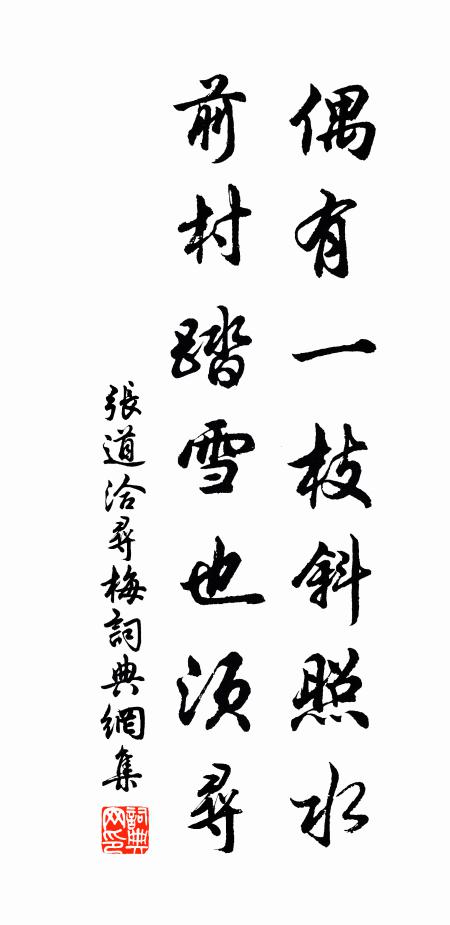 偶有一枝斜照水
前村踏雪也須尋
張道洽尋梅詞典網集
詞典网印